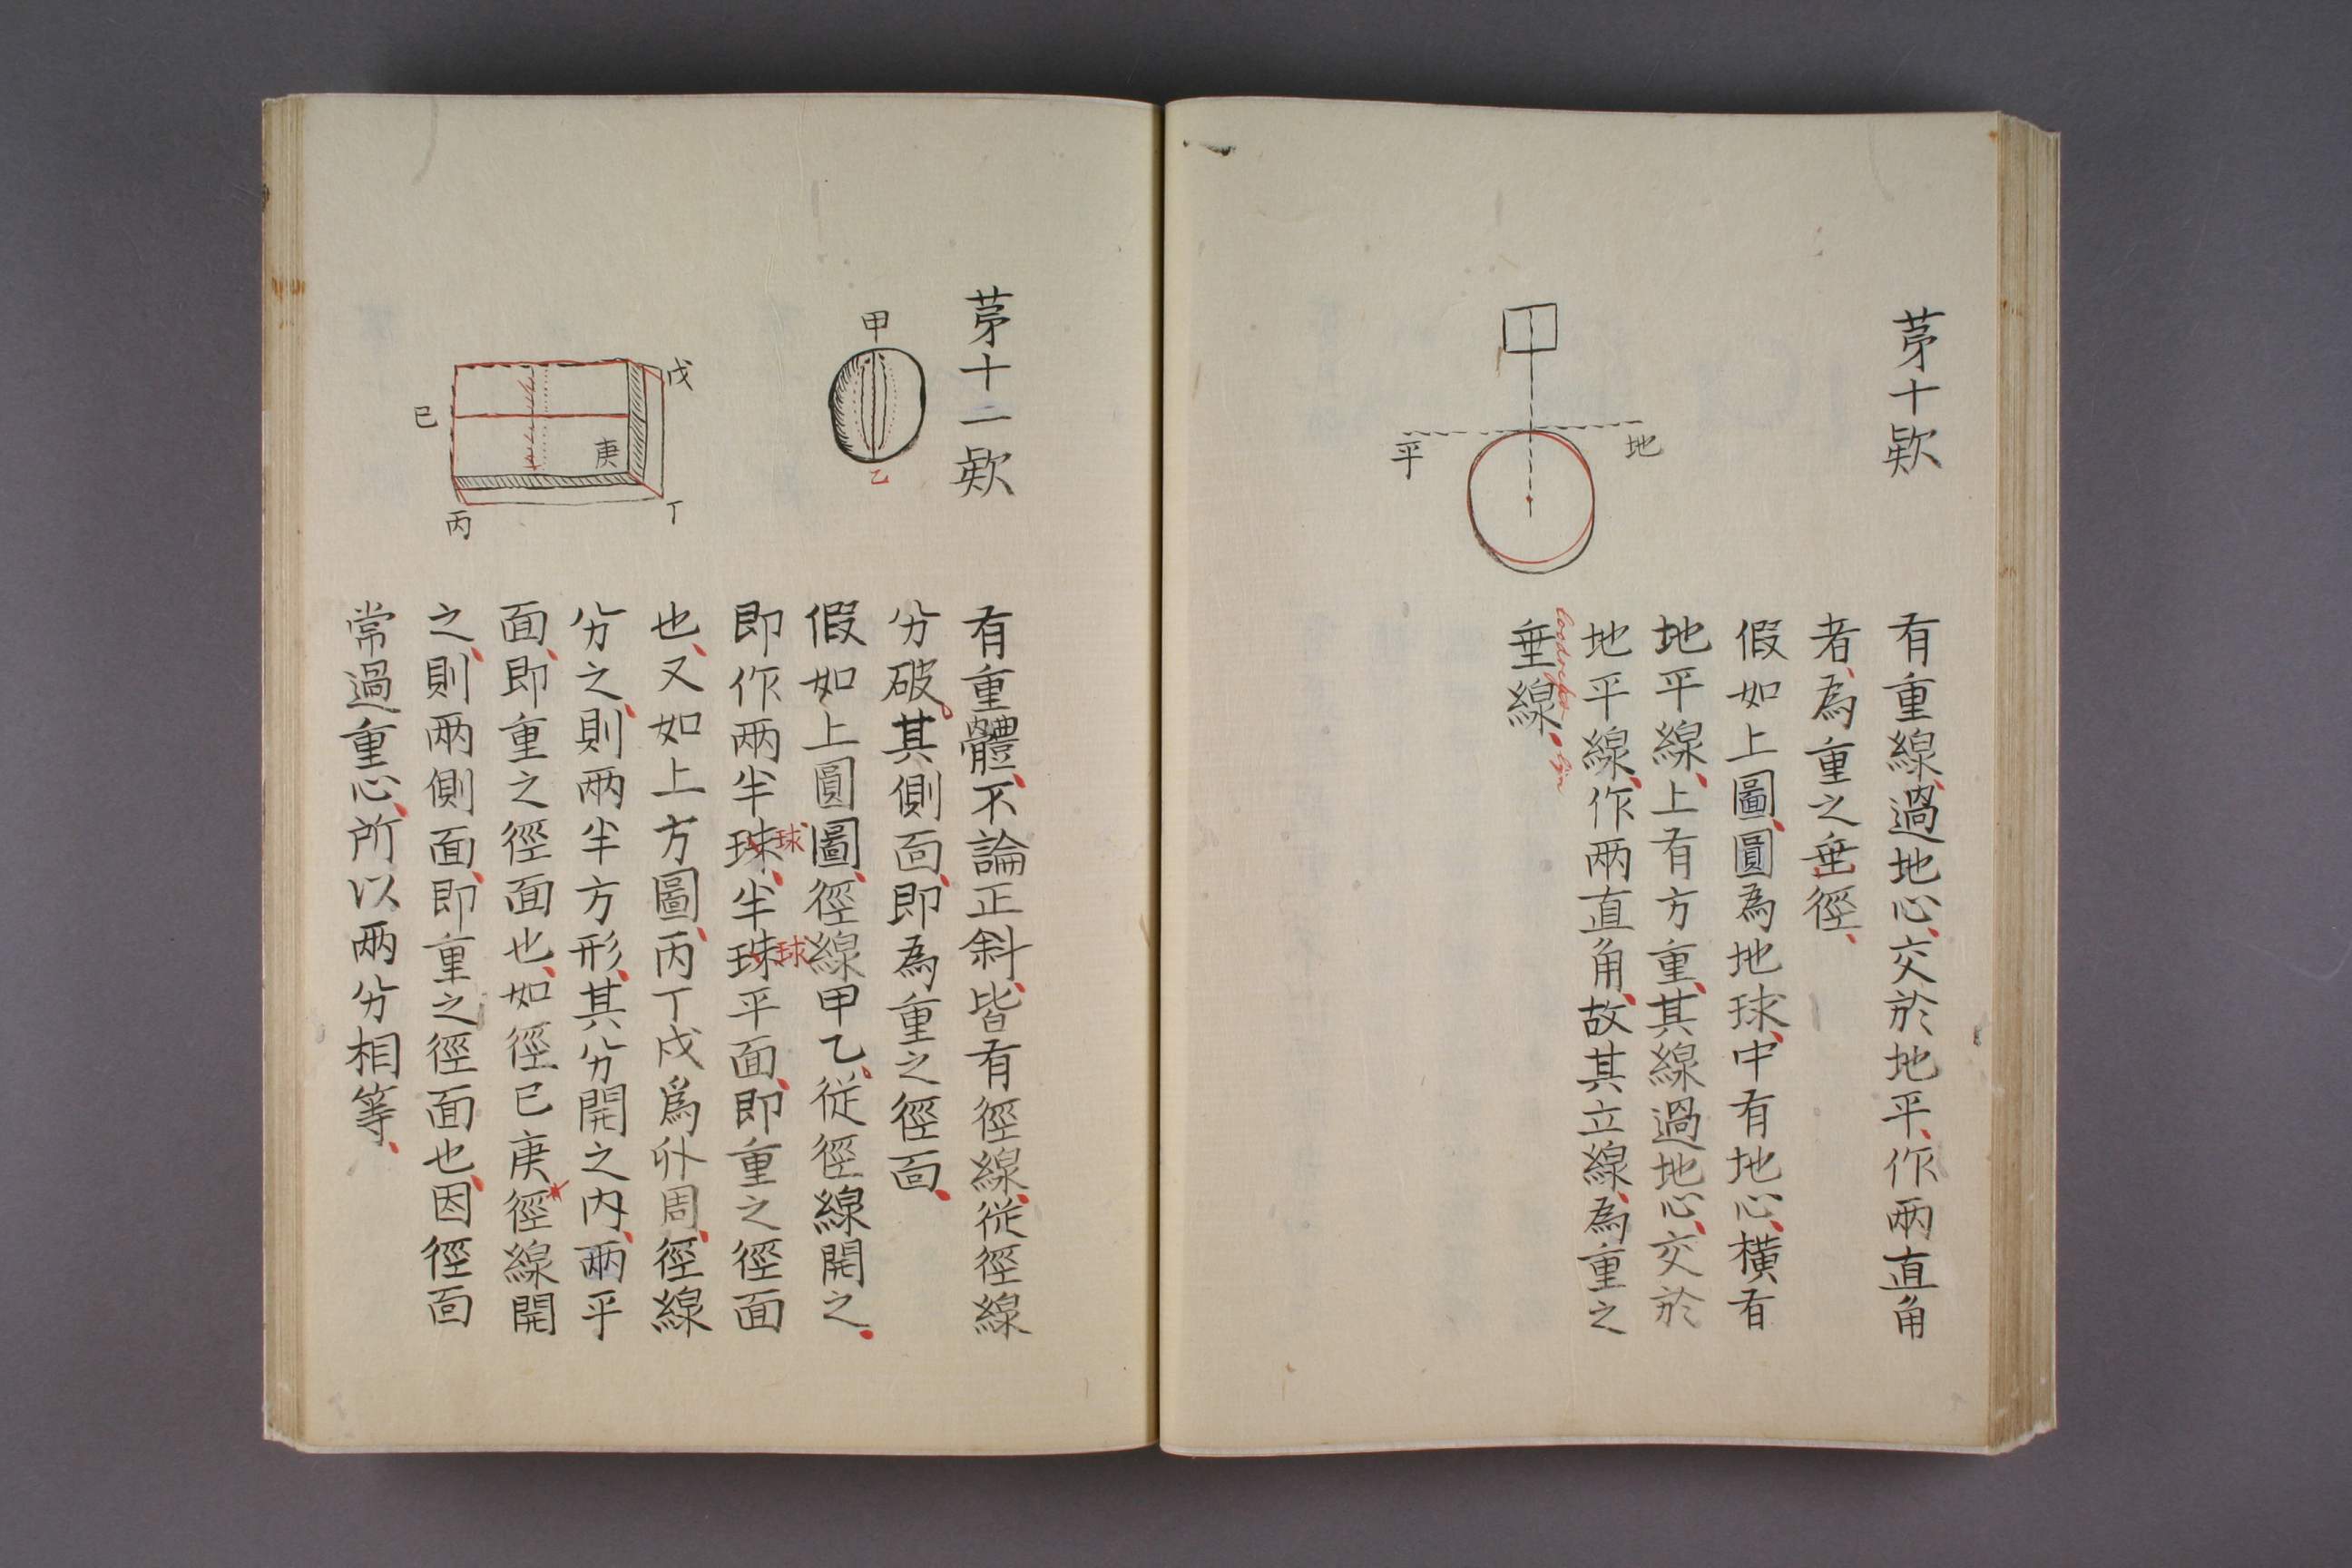 苐十欵
地
平
有重線過地心、交於地平、作兩直角
者、為重之垂徑、
假如上圖、圓為地球、中有地心、橫有
地平線、上有方重、其線過地心、交於
地平線、作兩直角、故其立線、為重之
垂線、
lijn
苐十二欵
甲
乙
戊
己
庚
丙
丁
有重體、不論正斜、皆有徑線、從徑線
分破、其側面、即為重之徑面、
假如上圓圖、徑線甲乙、從徑線開之、
即作兩半珠、半珠平面、即重之徑面
球
球
也、又如上方圖、丙丁戊爲外周、徑線
分之、則兩半方形、其分開之內、兩平
面、即重之徑面也、如徑己庚徑線開
之、則兩側面、即重之徑面也、因徑面
常過重心、所以兩分相等、